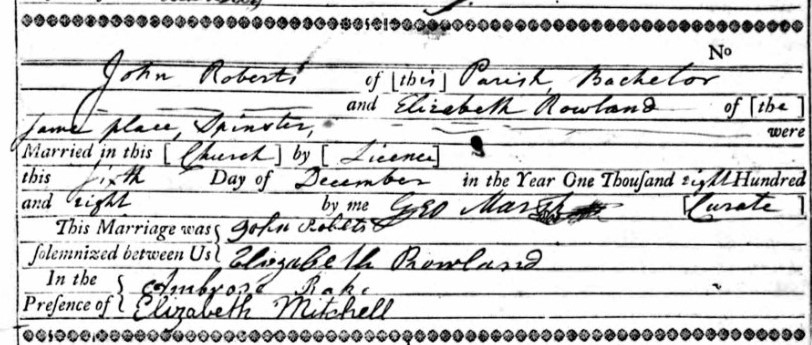 No
John Roberts of [this] Parish, Bachelor
and Elizabeth Rowland of [the]
same place, Spinster, were
Married in this [Church] by [Licence]
this sixth Day of December in the Year One Thousand eight Hundred
and eight by me Geo Marsh [Curate]
This Marriage was John Roberts
solemnized between Us Elizabeth Rowland
In the Ambrose Rake
Presence of Elizabeth Mitchell